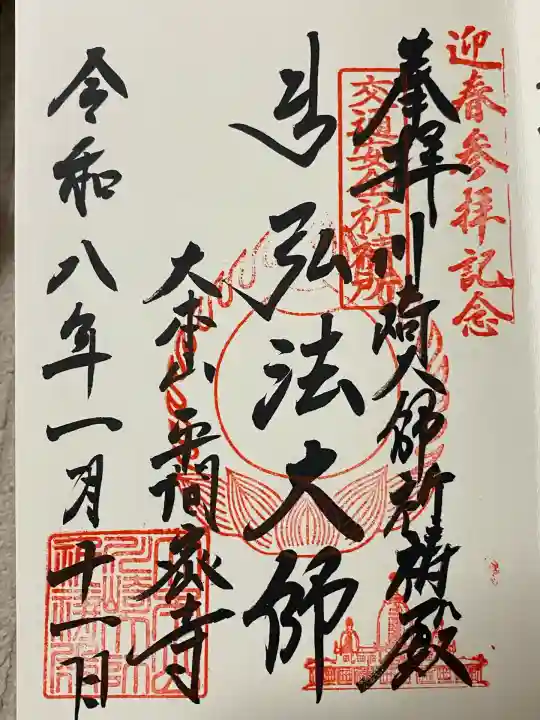 迎春参拝記念
奉拝
交通安全祈祷所
川崎大師祈祷殿
弘法大師
大本山 平間寺
令和八年一月十一日